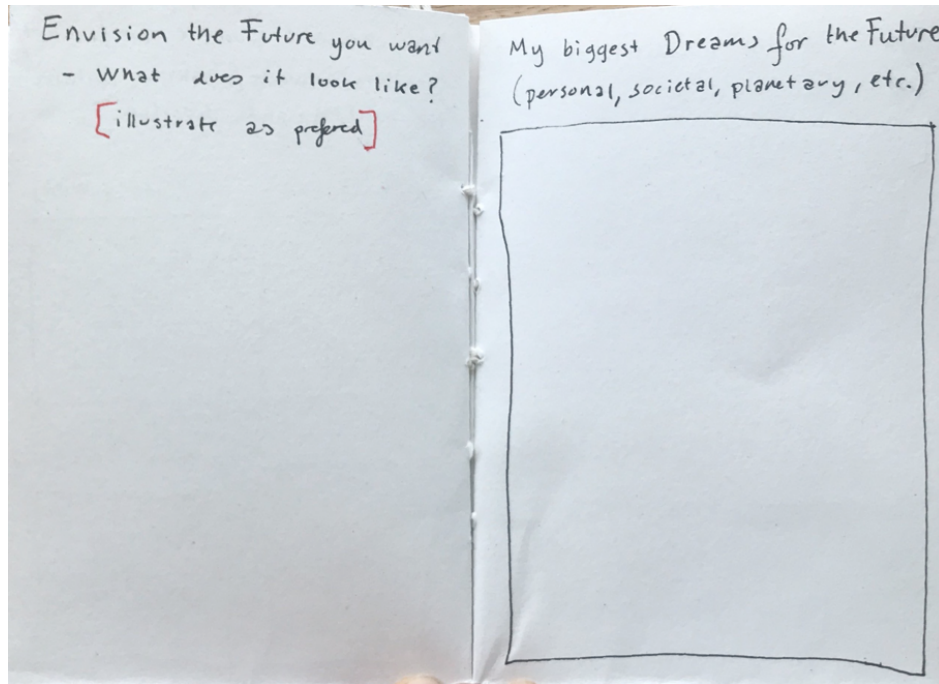 Envision the Future you want
- What does it look like?
[illustrate as prefered]
My biggest Dreams for the Future
(personal, societal, planetary, etc.)